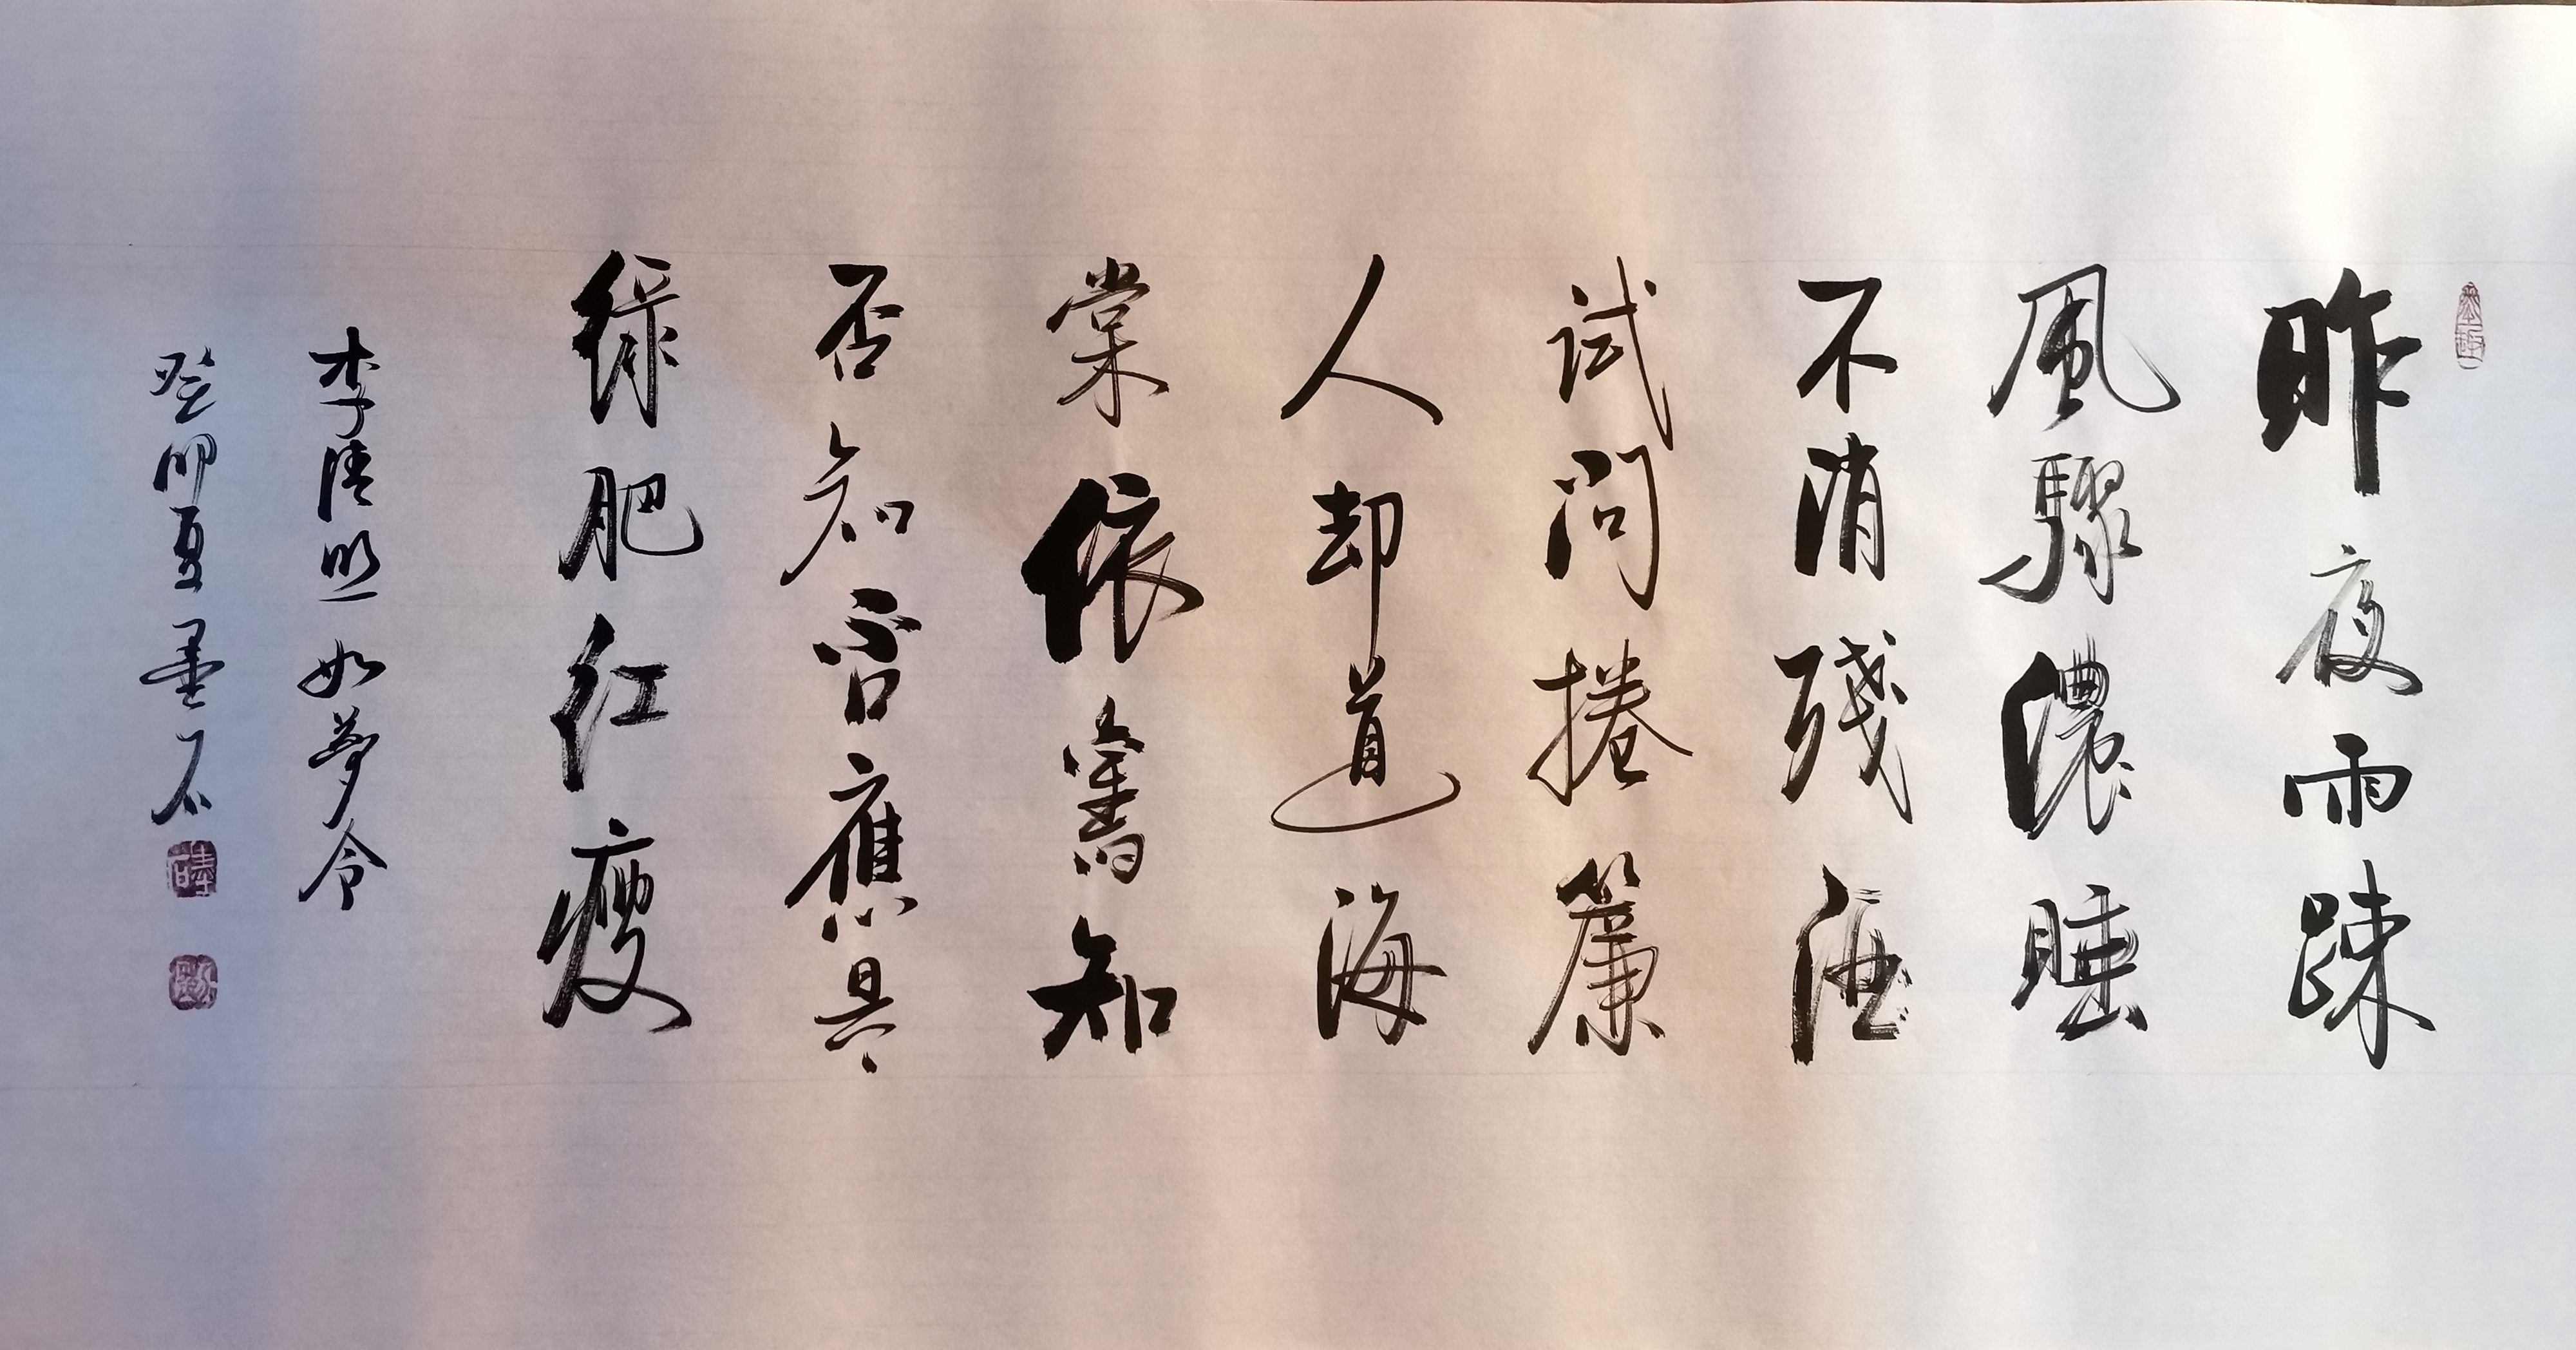 昨夜雨疎
風驟濃睡
不消殘酒
試问捲簾
人却道海
棠依舊知
否知否應是
绿肥红瘦
李清照如夢令
癸卯夏墨石